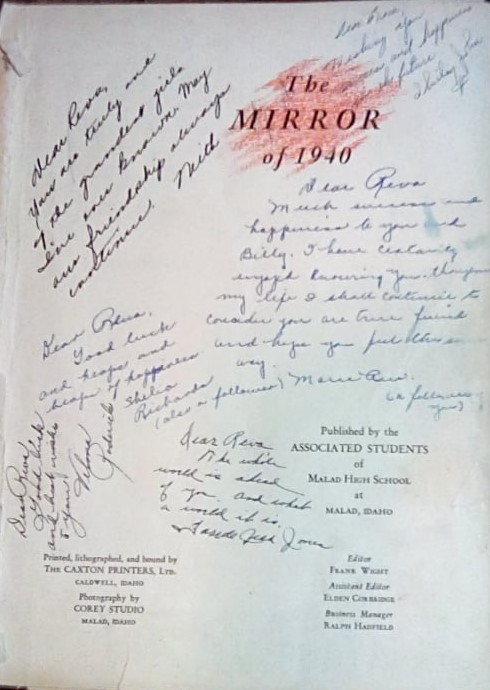 Dear Reva,
You are truly one
of the grandest girls
I've ever known. May
our friendship always
continue.
Dear Reva,
Wishing you
success and happiness
in the future
Shirley
The
MIRROR
of 1940
Dear Reva
Much success and
happiness to you and
Billy. I have certainly
enjoyed knowing you. through
my life I shall continue to
consider you are true friend
and hope you feel this
way.
(a follower
Dear Reva,
Good luck
and heaps and
heaps of happiness
Richards
(also a follower)
Dear Reva,
Good luck
and best wishes
to you
Dear Reva
The whole
world is ahead
of you. and what
a world it is.
Jones
Published by the
ASSOCIATED STUDENTS
of
MALAD HIGH SCHOOL
at
MALAD, IDAHO
Printed, lithographed, and bound by
THE CAXTON PRINTERS, LTD.
CALDWELL, IDAHO
Photography by
COREY STUDIO
MALAD, IDAHO
Editor
FRANK WIGHT
Assistant Editor
ELDEN CORBRIDGE
Business Manager
RALPH HADFIELD